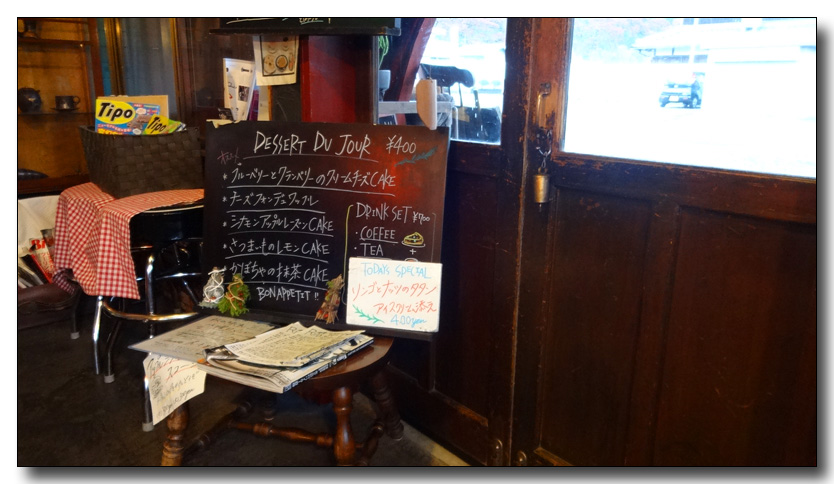 Tipo
Tipo
DESSERT DU JOUR ¥400
* ブルーベリーとクランベリーのクリームチーズCAKE
* チーズフォンデュワッフル
* シナモンアップルレーズンCAKE
* さつまいものレモンCAKE
* かぼちゃの抹茶CAKE
BON APPETIT !!
DRINK SET ¥700
・COFFEE
・TEA
+
TODAYS SPECIAL
リンゴとナッツのタタン
アイスクリーム添え
400yen